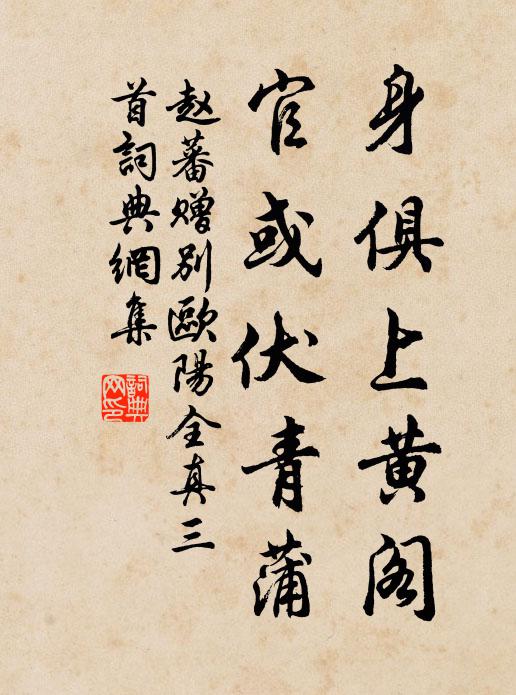 身俱上黄阁
官或伏青蒲
赵蕃赠别欧阳全真三
首词典网集
词典网印